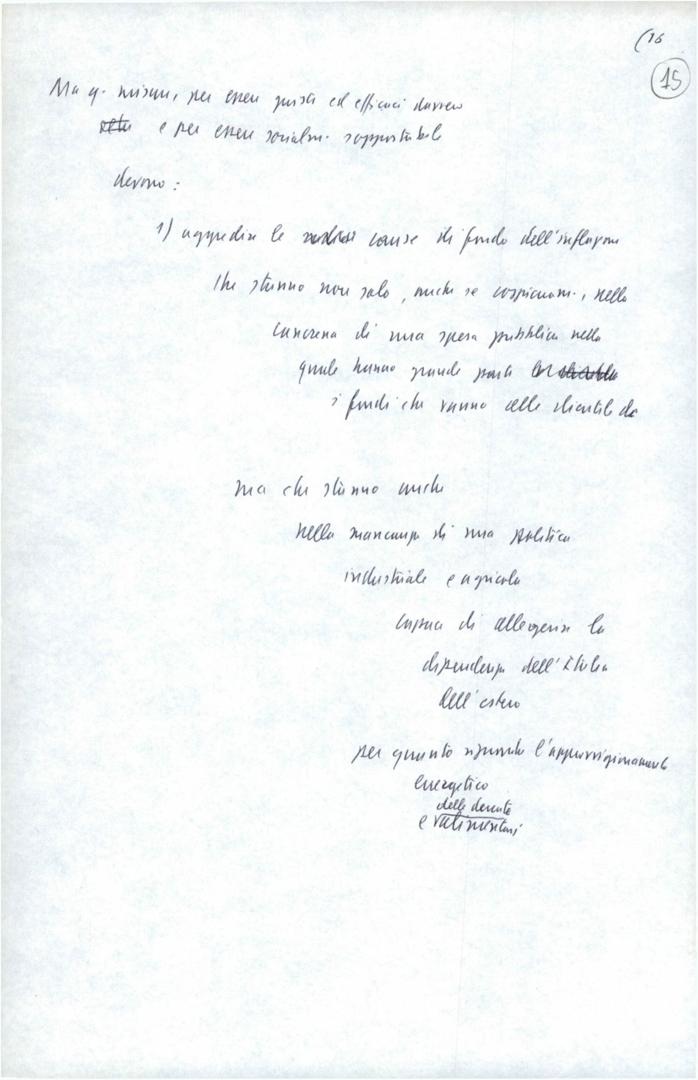 (16
15
Ma q. misure, per essere giusti ed efficaci davvero
e per essere socialm. sopportabili
devono:
1) aggredire le cause di fondo dell'inflazione
che stanno non solo, anche se cospicuam., nella
cancrena di una spesa pubblica nella
quale hanno grande parte
i fondi che vanno alle clientele
ma che stanno anche
nella mancanza di una politica
industriale e agricola
capace di alleggerire la
dipendenza dell'Italia
dall'estero
per quanto riguarda l'approvvigionamento
energetico
delle derrate
e alimentari